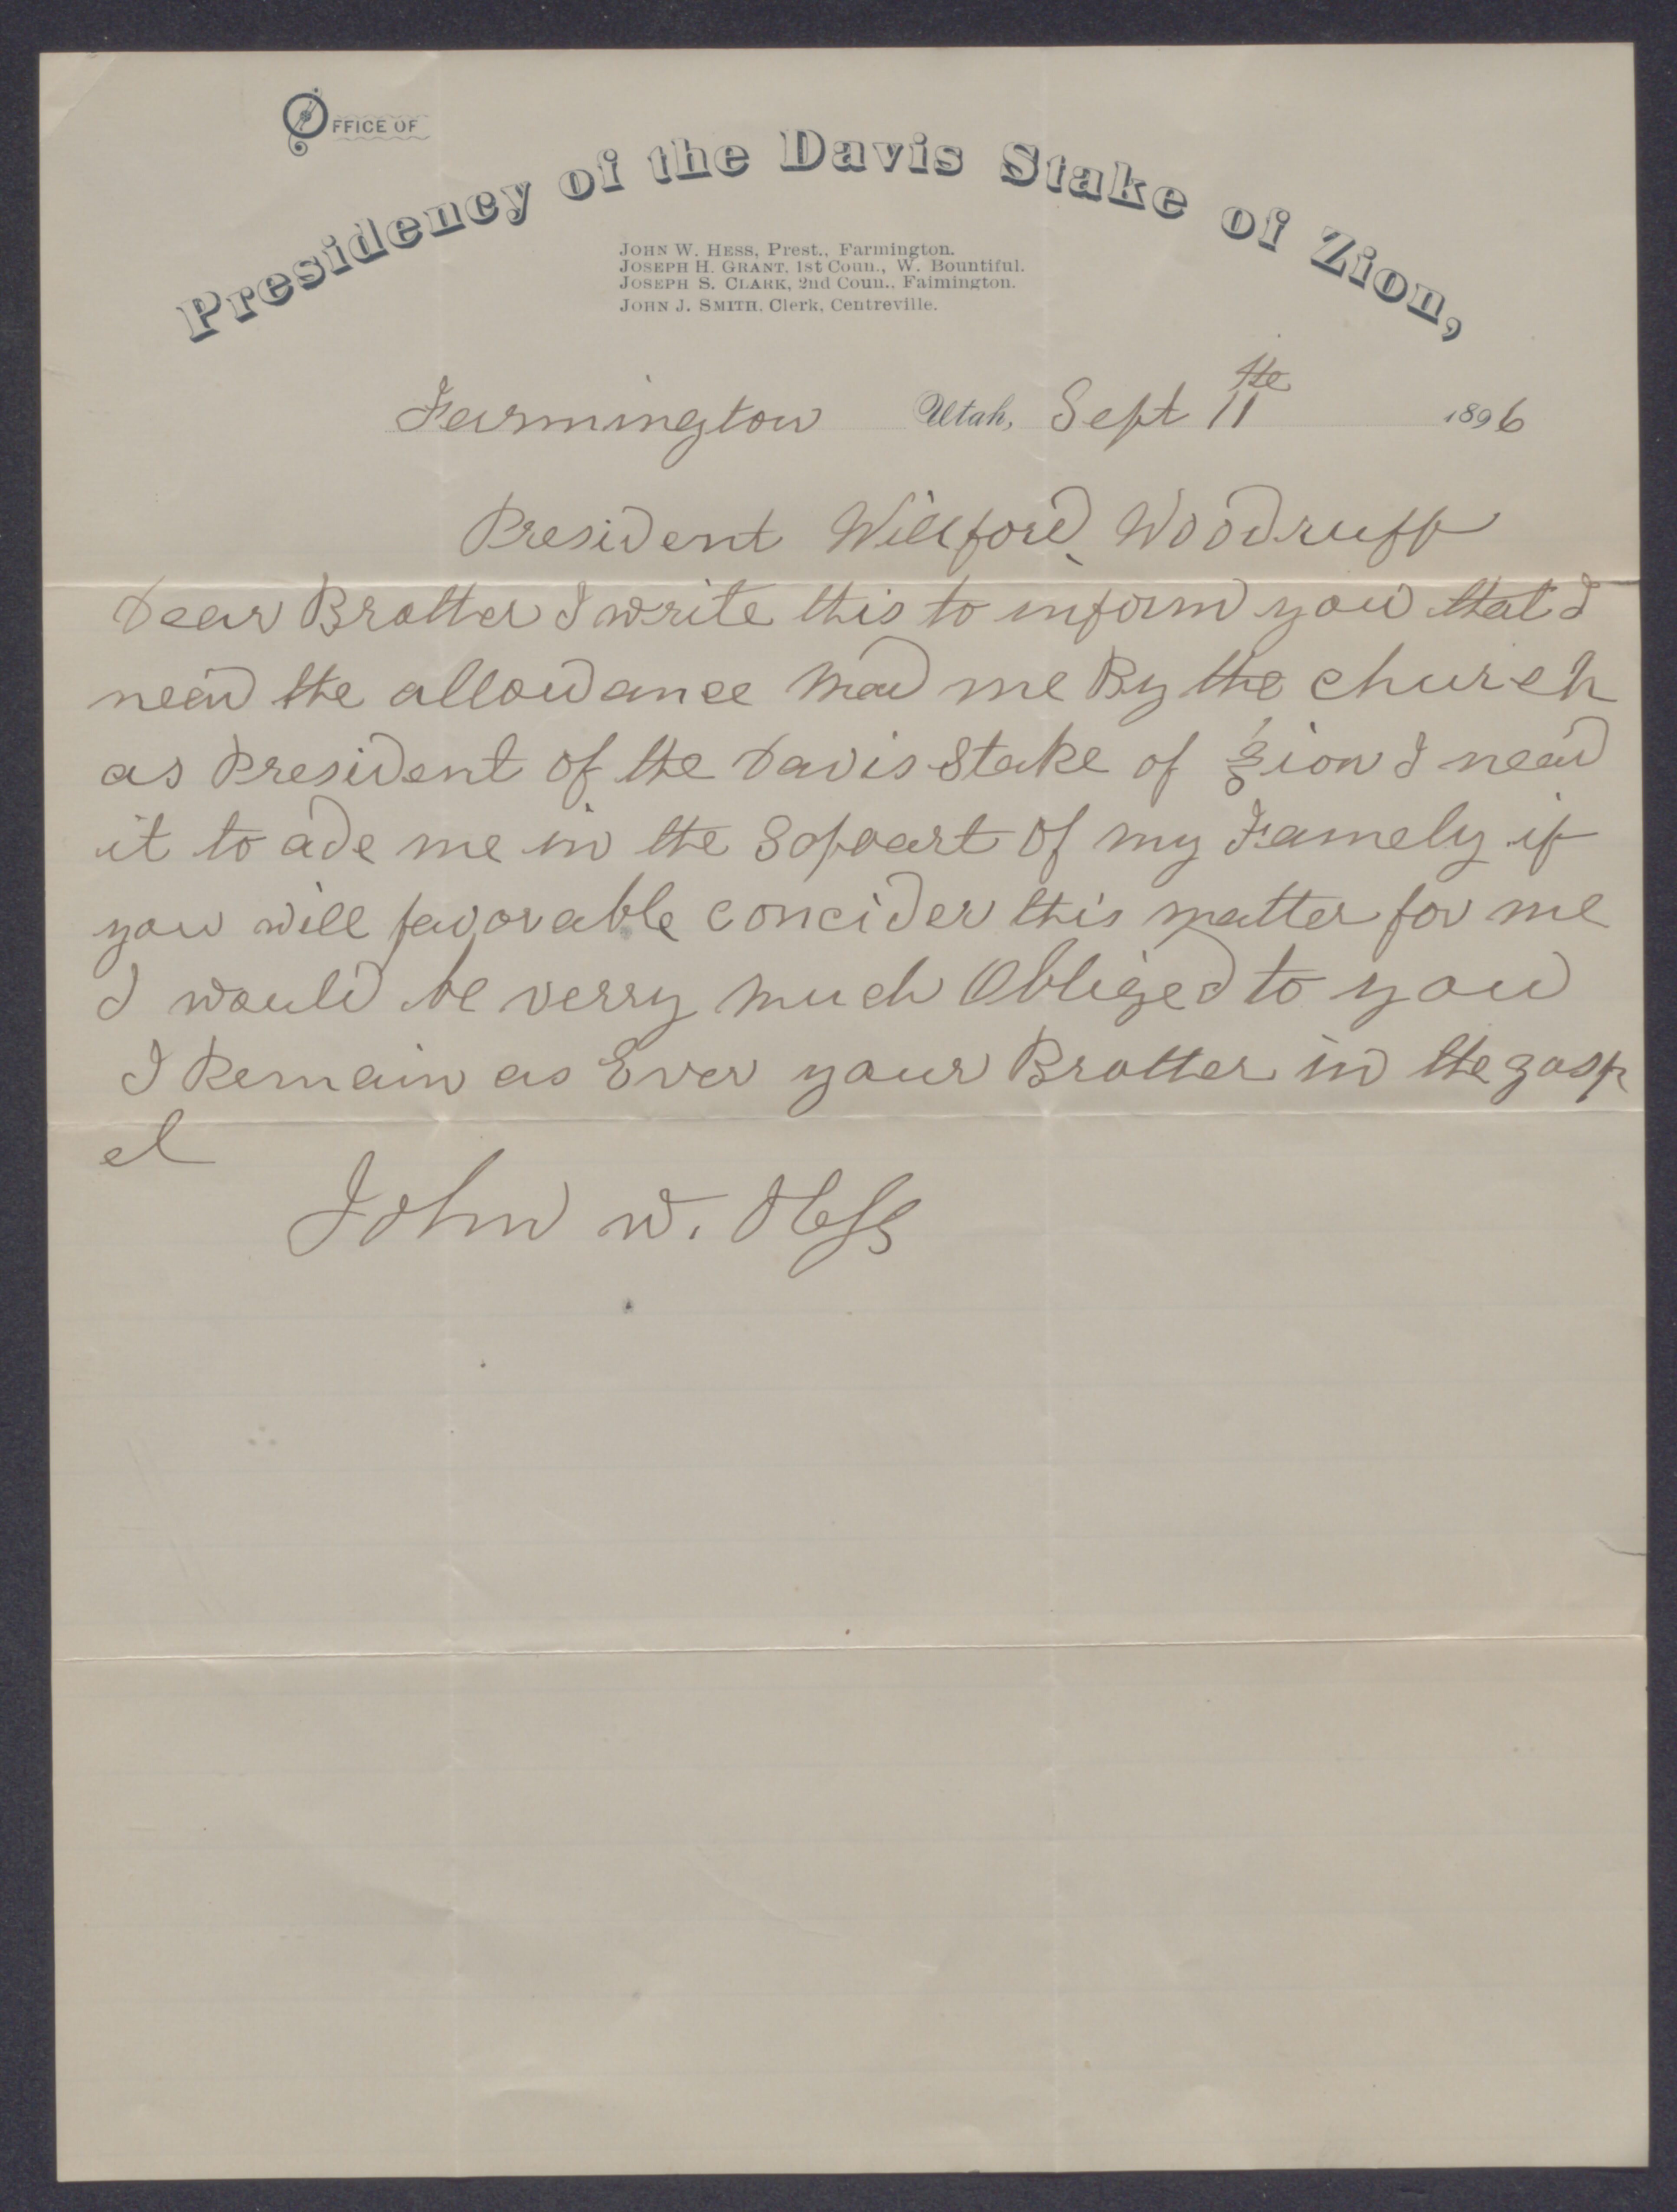 OFFICE OF
Presidency of the Davis Stake of Zion,
JOHN W. HESS, Prest., Farmington.
JOSEPH H. GRANT, 1st Coun., W. Bountiful.
JOSEPH S. CLARK, 2nd Coun., Faimington.
JOHN J. SMITH, Clerk, Centreville.
Farmington Utah, Sept 11th 1896
President Willford Woodruff
Dear Brother I write this to inform you that I
need the allowance mad me By the church
as President of the Davis Stake of Zion I need
it to ade me in the Soport of my Famely if
you will favorable concider this matter for me
I would be verry much Obliged to you
I Remain as Ever your Brother in the gosp
el
John W. Hess